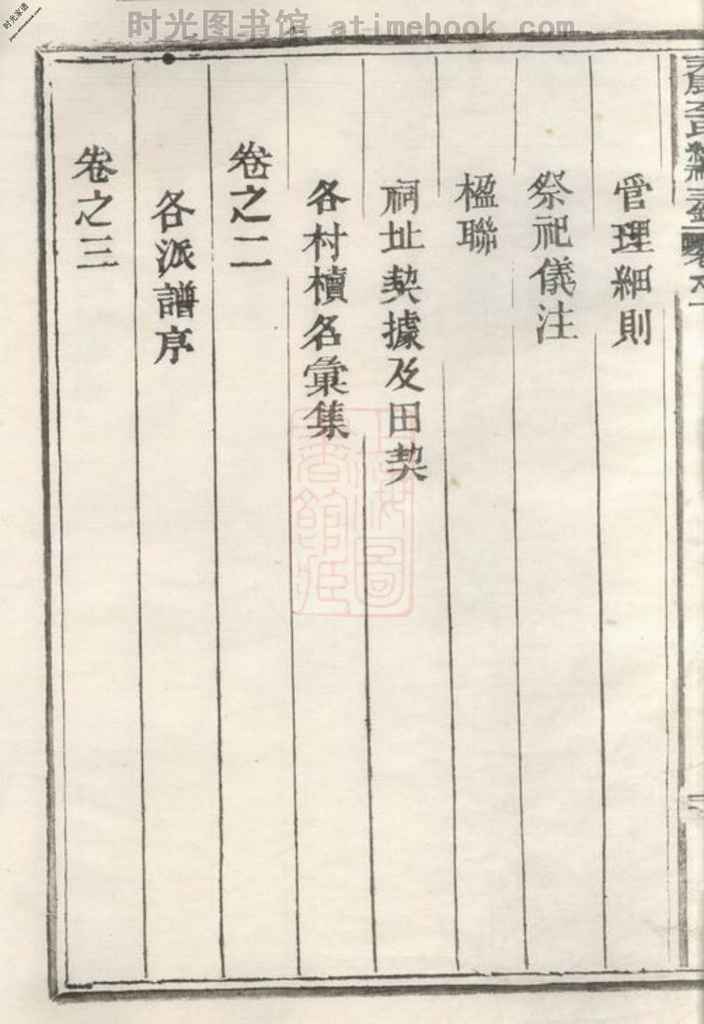 时光图书馆 atimebook.com
时光家谱
管理細則
祭祀儀注
楹聯
祠址契據及田契
各村櫝名彙集
卷之二
各派譜序
卷之三